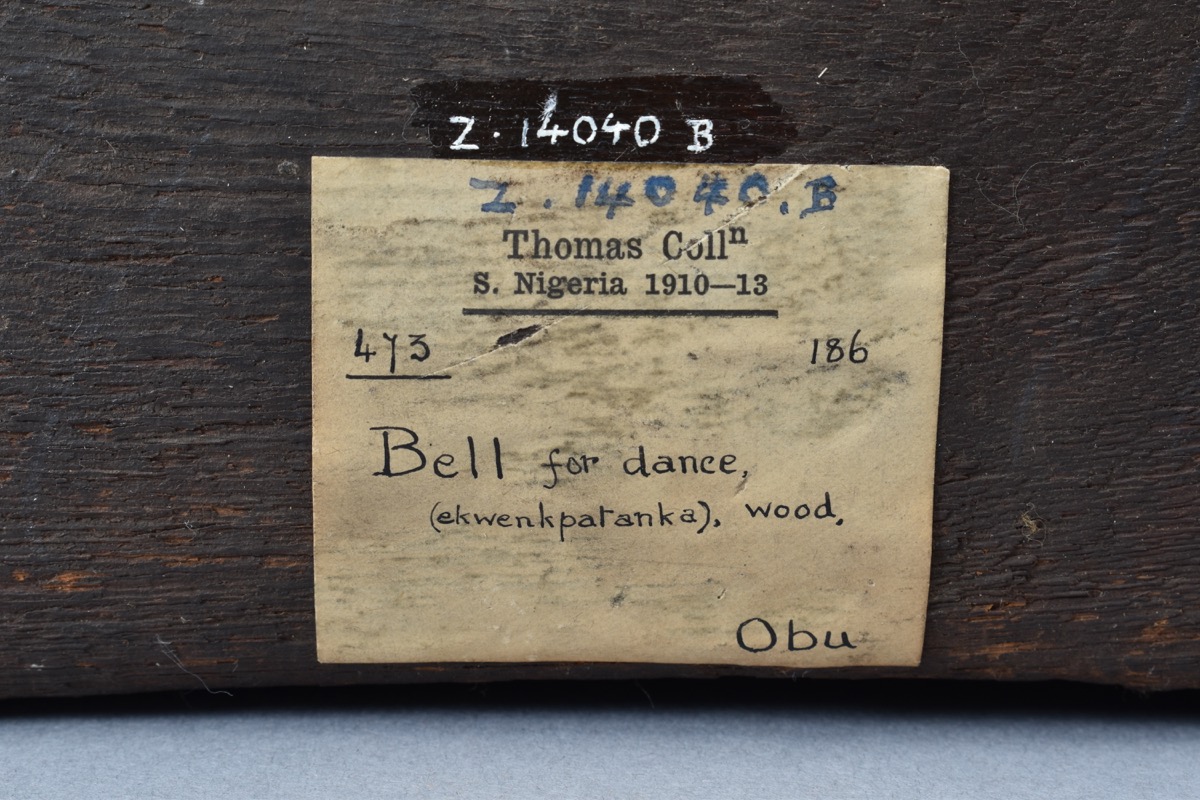 Z. 14040 B
Z. 14040.B
Thomas Collⁿ
S. Nigeria 1910—13
473 186
Bell for dance,
(ekwenkpatanka), wood,
Obu